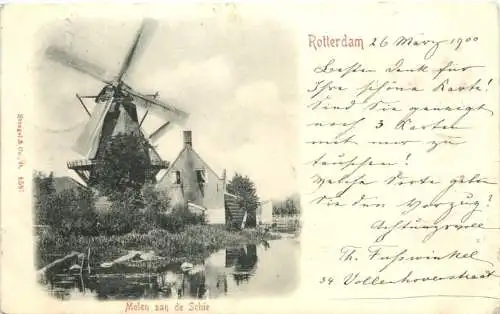 Rotterdam 26 März 1900
Besten Dank für
Ihre schöne Karte!
Sind Sie geneigt
noch 3 Karten
mit mir zu
tauschen!
Welche Sorte geben
Sie den Vorzug?
Achtungsvoll
Th. Fusswinkel
34 Vollenhovenstraat
Stengel & Co.,
Molen aan de Schie